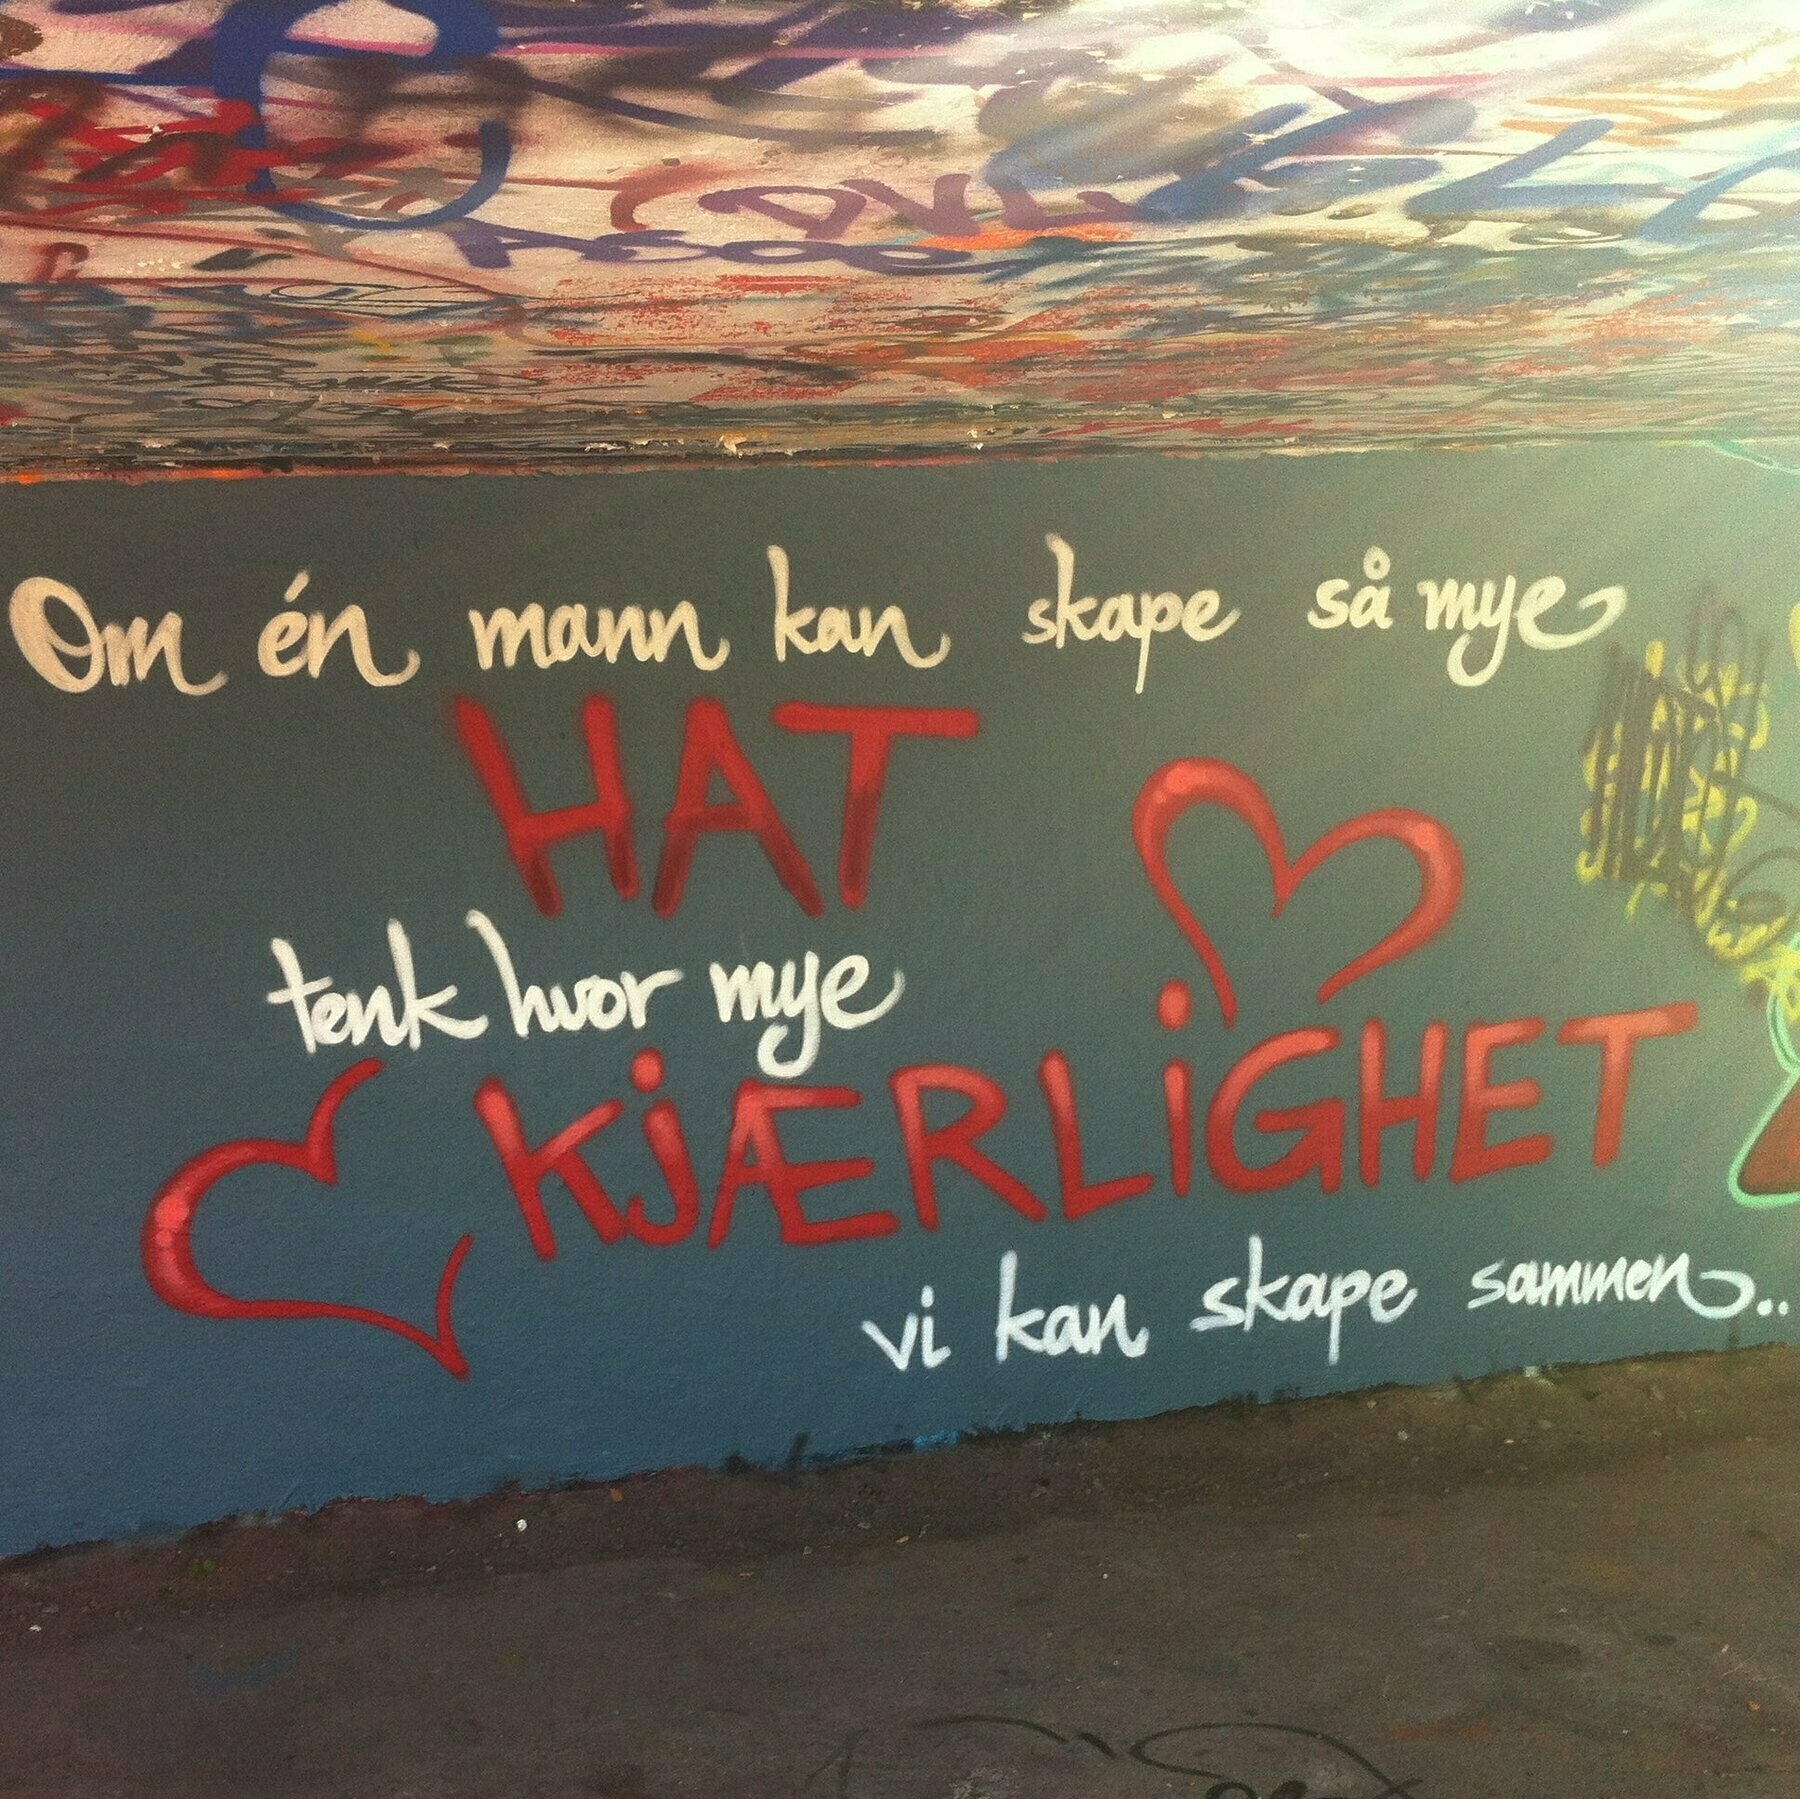 Om én mann kan skape så mye
HAT
tenk hvor mye
KJÆRLiGHET
vi kan skape sammen..